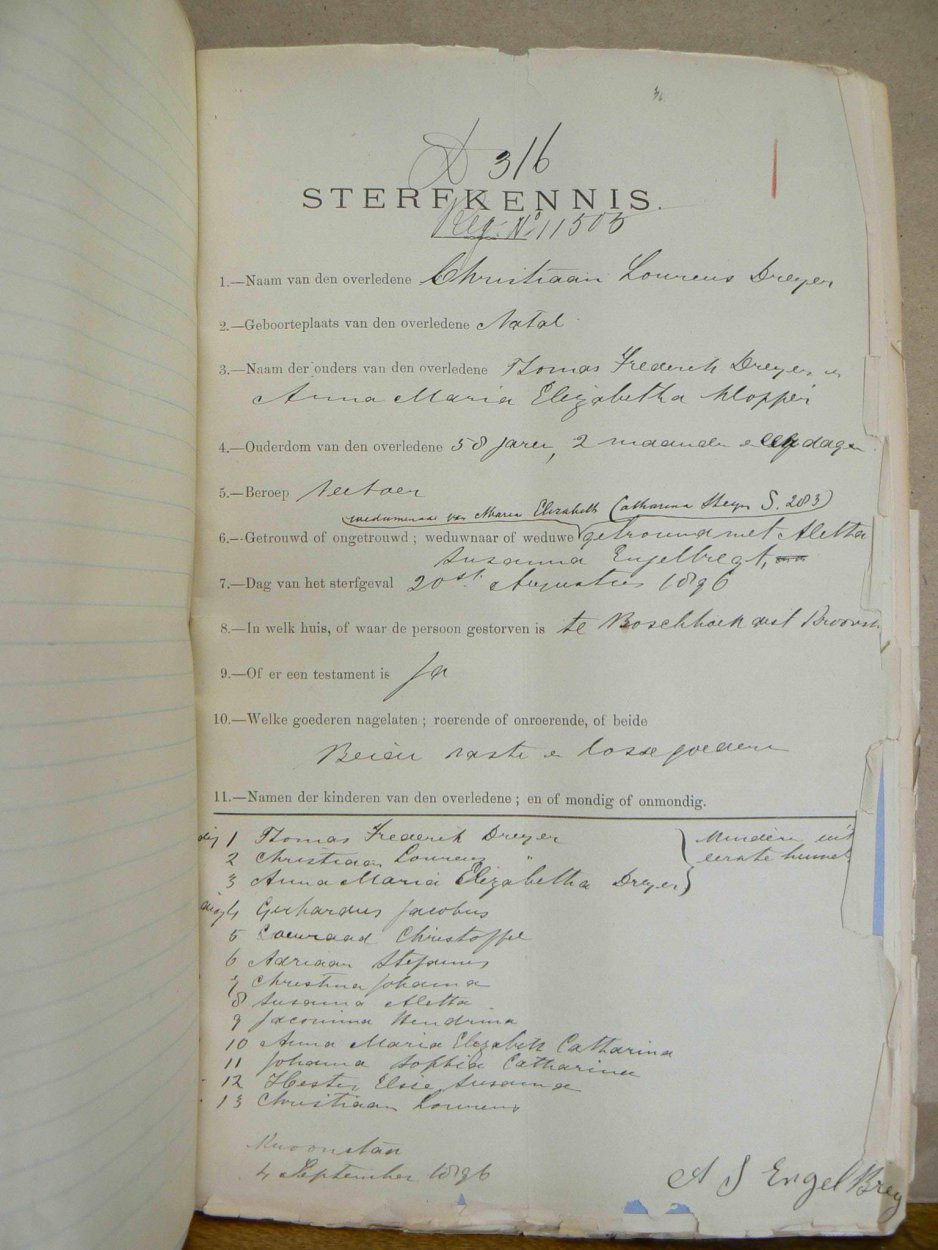 D 316
STERFKENNIS.
Reg. No 11505
1.—Naam van den overledene Christiaan Lourens Dreyer
2.—Geboorteplaats van den overledene Natal
3.—Naam der ouders van den overledene Thomas Frederik Dreyer en
Anna Maria Elizabetha Klopper
4.—Ouderdom van den overledene 58 jaren, 2 maanden e dagen
5.—Beroep Veeboer
(weduwenaar van Maria Elizabeth Catharina Steyn S. 283)
6.—Getrouwd of ongetrouwd ; weduwnaar of weduwe getrouwd met Aletta
Susanna Engelbregt,
7.—Dag van het sterfgeval 20st Augustus 1896
8.—In welk huis, of waar de persoon gestorven is te Boschhoek dist Kroonst
9.—Of er een testament is Ja
10.—Welke goederen nagelaten ; roerende of onroerende, of beide
Beide vaste e losse goederen
11.—Namen der kinderen van den overledene ; en of mondig of onmondig.
dig 1 Thomas Frederik Dreyer
2 Christiaan Lourens "
3 Anna Maria Elizabetha Dreyer
Kinderen uit
eerste huwel
4 Gerhardus Jacobus
5 Coenraad Christoffel
6 Adriaan Stefanus
7 Christina Johanna
8 Susanna Aletta
9 Jacomina Hendrina
10 Anna Maria Elizabeth Catharina
11 Johanna Sophia Catharina
12 Hester Elsie Susanna
13 Christiaan Lourens
Kroonstad
4 September 1896
A S Engel Breg